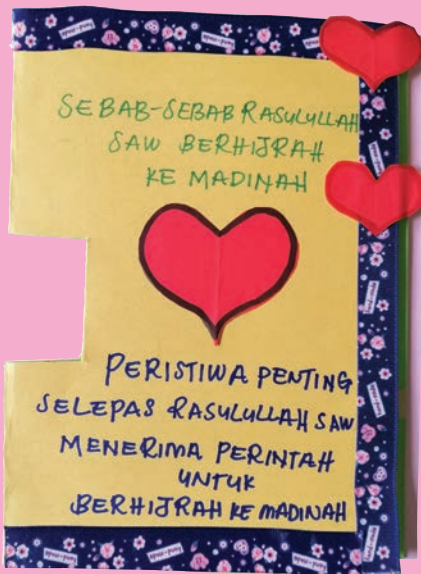 SEBAB-SEBAB RASULULLAH
SAW BERHIJRAH
KE MADINAH
PERISTIWA PENTING
SELEPAS RASULULLAH SAW
MENERIMA PERINTAH
UNTUK
BERHIJRAH KE MADINAH